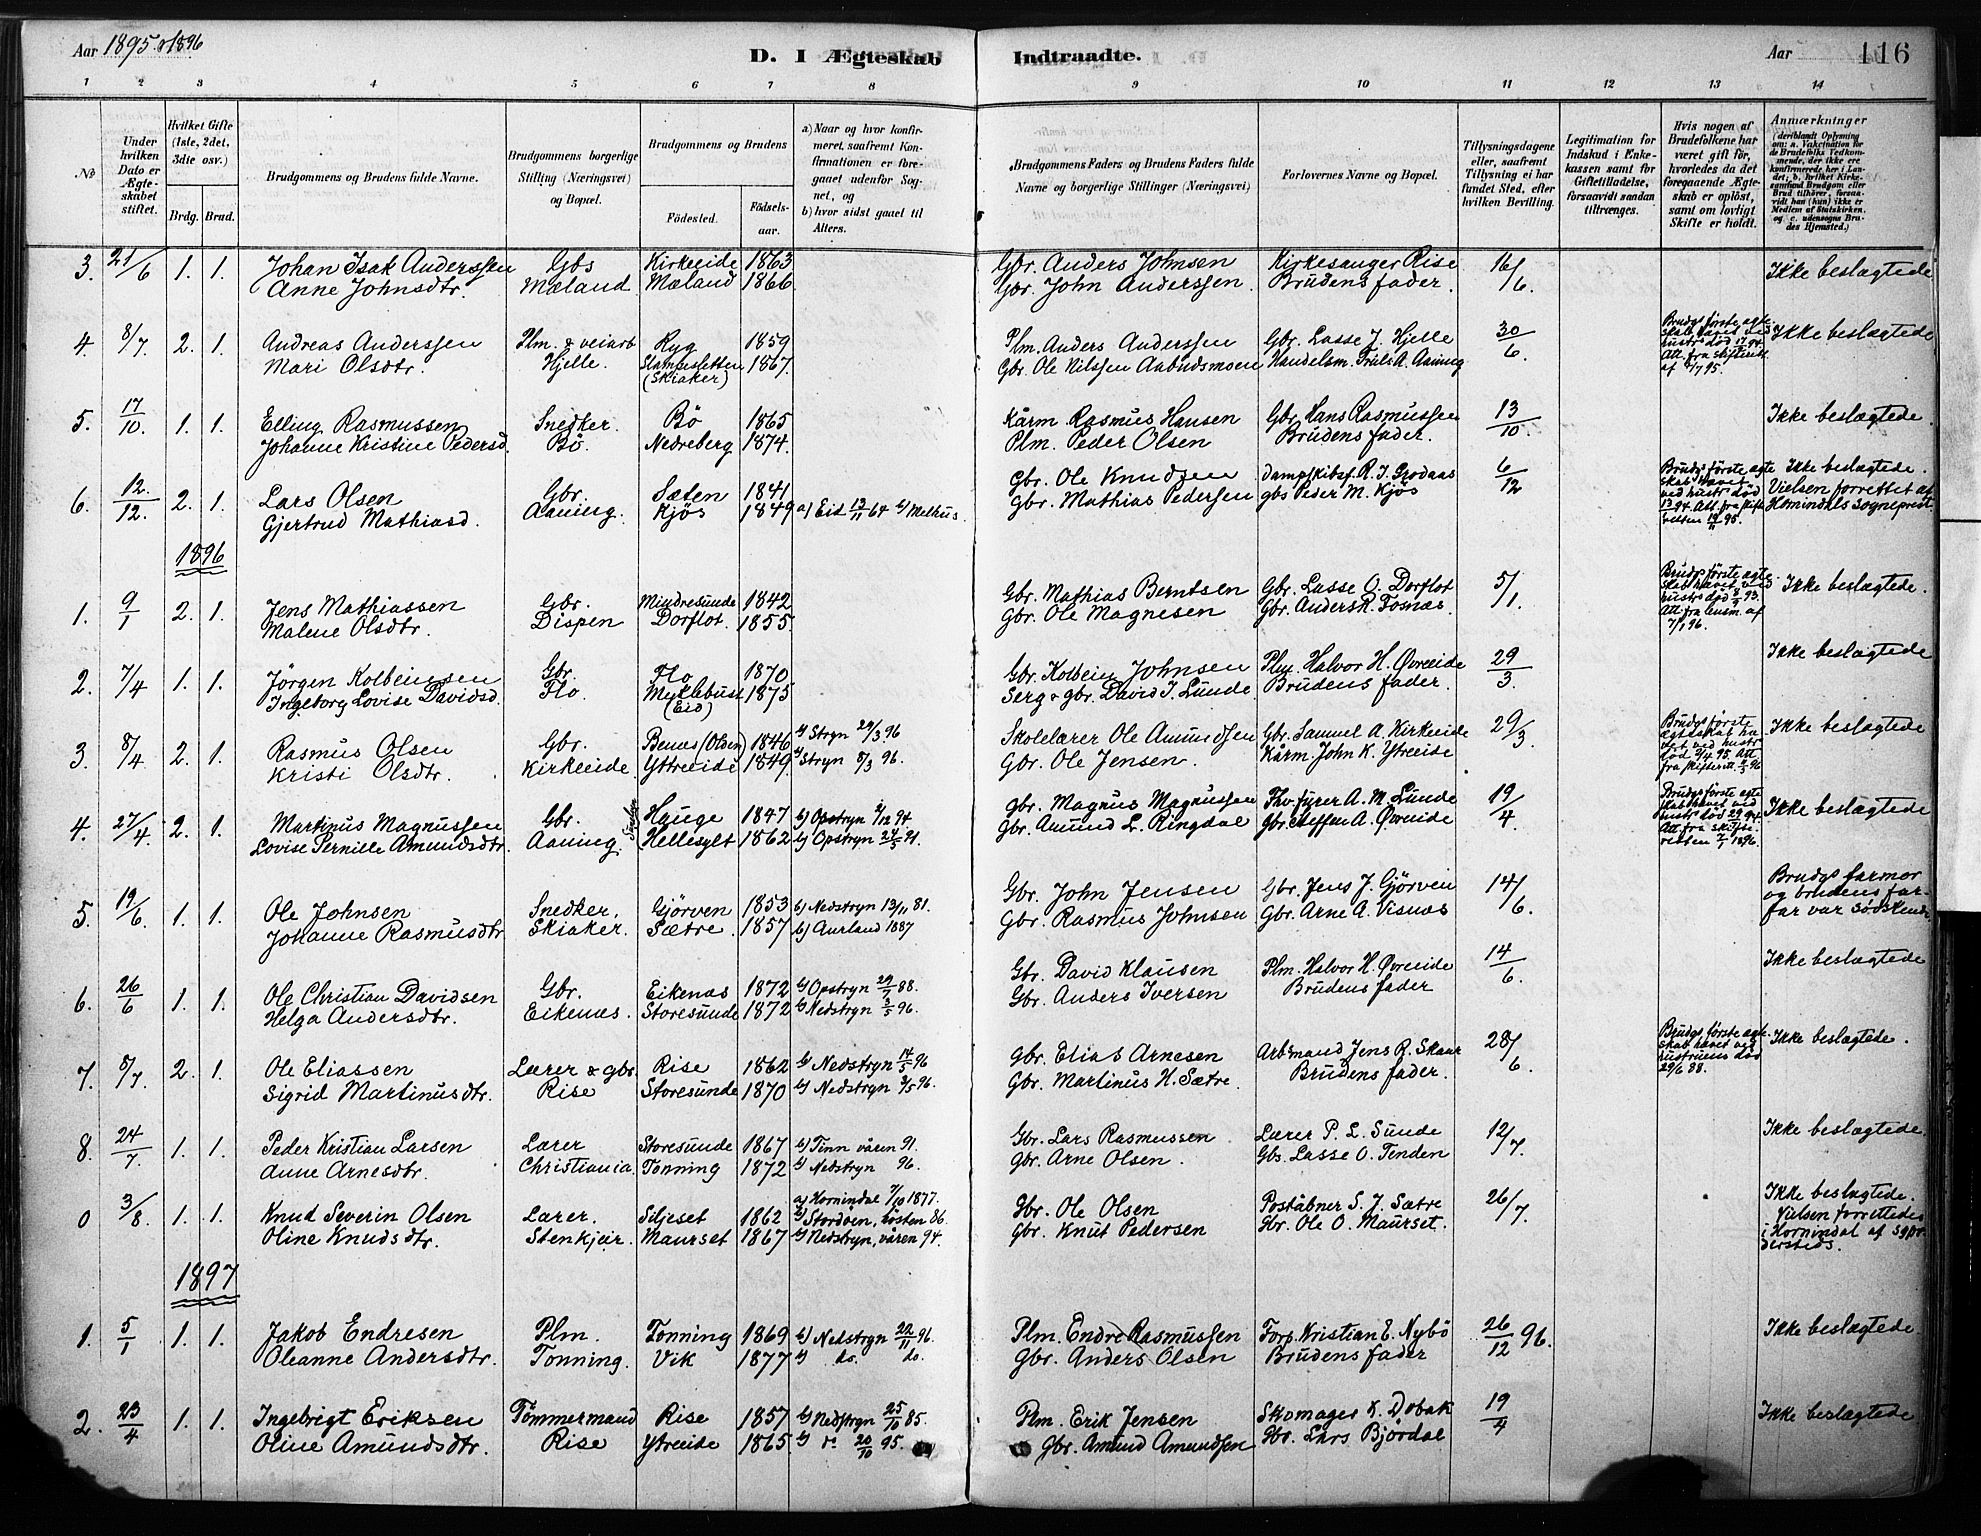 Aar 1895 & 1896
D. I Ægteskab Indtraadte.
Aar 116
1 2 3 4 5 6 7 8 9 10 11 12 13 14
No
Under hvilken Dato er Ægteskabet stiftet.
Hvilket Gifte (1ste, 2det, 3die osv.)
Brdg. Brud.
Brudgommens og Brudens fulde Navne.
Brudgommens borgerlige Stilling (Næringsvei) og Bopæl.
Brudgommens og Brudens
Födested. Födselsaar.
a) Naar og hvor konfirmeret, saafremt Konfirmationen er foregaaet udenfor Sognet, og
b) hvor sidst gaaet til Alters.
Brudgommens Faders og Brudens Faders fulde Navne og borgerlige Stillinger (Næringsvei)
Forlovernes Navne og Bopæl.
Tillysningsdagene eller, saafremt Tillysning ei har fundet Sted, efter hvilken Bevilling.
Legitimation for Indskud i Enkekassen samt for Giftetilladelse, forsaavidt saadan tiltrænges.
Hvis nogen af Brudefolkene har været gift för, hvorledes da det foregaaende Ægteskab er oplöst, samt om lovligt Skifte er holdt.
Anmærkninger (deriblandt Oplysning om: a. Vakcination for de Brudefolks Vedkommende, der ikke ere konfirmerede her i Landet; b. hvilket Kirkesamfund Brudgom eller Brud tilhörer, forsaavidt han (hun) ikke er Medlem af Statskirken, og c. udensogns Brudes Hjemsted.)
3. 21/6 1. 1. Johan Isak Anderssen Gbs Kirkeeide 1863 Gbr. Anders Johnsen Kirkesanger Rise 16/6. Ikke beslægtede
Anne Johnsdtr. Mæland Mæland 1866 Gbr. John Anderssen. Brudens fader.
4. 8/7 2. 1. Andreas Anderssen Plm. & veiarb Ryg 1859 Plm. Anders Anderssen Gbr. Lasse J. Hjelle 30/6. Brudgs förste ægteskab hævet ved hustrs död 17/94. Att. fra skifterett. af 7/95. Ikke beslægtede
Mari Olsdtr. Hjelle. Stampesletten (Skiaker) 1867. Gbr. Ole Nilssen Aabudsmoen Handelsm. Truls A. Aaning
5. 17/10. 1. 1. Elling Rasmussen Snedker. Bö 1865 Kårm Rasmus Hansen Gbr. Hans Rasmussen 13/10. Ikke beslægtede.
Johanne Kristine Pedersd. Bö. Nedreberg 1874. Plm. Peder Olsen Brudens fader.
6. 12./12. 2. 1. Lars Olsen Gbr. Sæten 1841 Gbr. Ole Knudsen Dampskibsf. R. J. Grodaas 6/12 Brudgs förste ægteskab hævet ved hustr död 13/94. Att. fra skifteretten 19/11 95. Ikke beslægtede. Vielsen forrettet af Hornindals sogneprest
Gjertrud Mathiasd. Aaning. Kjös 1849 a) Eid 13/11 64 b) Melhus. Gbr. Mathias Pedersen gbs Peder M. Kjös
1896
1. 9/1 2. 1. Jens Mathiassen Gbr. Mindresunde 1842 Gbr. Mathias Berntsen Gbr. Lasse O. Dorflot 5/1. Brudgs förste ægteskab hævet ved hustrs död 8/93. Att. fra lensm. af 7/1 96. Ikke beslægtede.
Malene Olsdtr. Dispen Dorflot. 1855. Gbr. Ole Magnesen Gbr. Anders R. Tosnæs.
2. 7/4 1. 1. Jørgen Kolbeinsen Gbr. Flo 1870 Gbr. Kolbein Johnsen Plm. Halvor H. Øvreeide 29/3. Ikke beslægtede
Ingeborg Lovise Davidsd. Flo. Myklebust (Eid) 1875 Serg. & gbr. David J. Lunde Brudens fader.
3. 8/4 2. 1. Rasmus Olsen Gbr. Benæs (Olden) 1846 b) Stryn 29/3 96 Skolelærer Ole Amundssen Gbr. Samuel A. Kirkeeide 29/3 Brudgs förste ægteskab hævet ved hustr död 3/4 95. Att. fra skifterett. 3/96 Ikke beslægtede
Kristi Olsdtr. Kirkeeide. Yttreeide 1849. b) Stryn 8/3 96. Gbr. Ole Jensen. Kårm. John K. Ytreeide
4. 27/4 2. 1. Martinus Magnussen Gbr. Hauge 1847 b) Opstryn 2/12 94 gbr. Magnus Magnussen Thv. fyrer A. M. Lunde 19/4. Brudgs förste ægteskab hævet ved hustrs död 29/94. Att. fra skifteretten 7/1 1896. Ikke beslægtede
Lovise Pernille Amundsdtr. Aaning. Hellesylt 1862 b) Opstryn 24/5 91. Gbr. Amund L. Ringdal Gbr. Steffen A. Øvreeide
5. 19/6 1. 1. Ole Johnsen Snedker. Gjörven 1853 b) Nedstryn 13/11 81. Gbr. John Jensen Gbr. Jens J. Gjörven 14/6. Brudgs farmor og brudens farfar var södskende.
Johanne Rasmusdtr. Skiaker. Sætre. 1857 b) Aurland 1887 Gbr. Rasmus Johnsen Gbr. Arne A. Visnæs
6. 26/6 1. 1. Ole Christian Davidsen Gbr. Eikenæs 1872 b) Opstryn 29/7 88. Gbr. David Klausen Plm. Halvor H. Øvreeide 14/6 Ikke beslægtede
Helga Andersdtr. Eikenæs. Storesunde 1872 b) Nedstryn 3/5 96. Gbr. Anders Iversen Brudens fader
7. 5/7 2. 1. Ole Eliassen Lærer & gbr. Rise 1862 b) Nedstryn 14/5 96 Gbr. Elias Arnesen Arbmand Jens R. Skaar 28/6. Brudgs förste ægteskab hævet ved hustruens död 29/6 88. Ikke beslægtede.
Sigrid Martinusdtr. Rise Storesunde 1870 b) Nedstryn 3/5 96. Gbr. Martinus H. Sætre. Brudens fader.
8. 24/7 1. 1. Peder Kristian Larsen Lærer Storesunde 1867 b) Tinn våren 91. Gbr. Lars Rasmussen Lærer P. L. Sunde 12/7. Ikke beslægtede.
Anne Arnesdtr. Christiania. Tonning 1872 b) Nedstryn 96. Gbr. Arne Olsen. Gbs. Lasse O. Tenden
0 3/8. 1. 1. Knud Severin Olsen Lærer. Siljeset 1862 a) Hornindal 7/10 1877. b) Stordöen, hösten 86. Gbr. Ole Olsen Poståbner S. J. Sætre 26/7 Ikke beslægtede. Vielsen forrettedes i Hornindal af sgpr. dersteds.
Oline Knudsdtr. Stenkjær. Maurset 1867 b) Nedstryn, våren 94. Gbr. Knut Pedersen Gbr. Ole O. Maurset.
1897
1. 5/1 1. 1. Jakob Endresen Plm. Tonning 1869 b) Nedstryn 22/11 96. Plm. Endre Rasmussen Forp. Kristian E. Nybö 26/12 96. Ikke beslægtede
Oleanne Andersdtr. Tonning. Vik 1877 b) do. do. Gbr. Anders Olsen Brudens fader
2. 23/4 1. 1. Ingebrigt Eriksen Tömmermand Rise 1857 b) Nedstryn 25/10 85. Plm. Erik Jensen Skomager K. Dobak 19/4 Ikke beslægtede
Oline Amundsdtr. Rise Ytreeide 1865 b) do 20/10 95. Gbr. Amund Amundsen Gbr. Lars Bjørdal